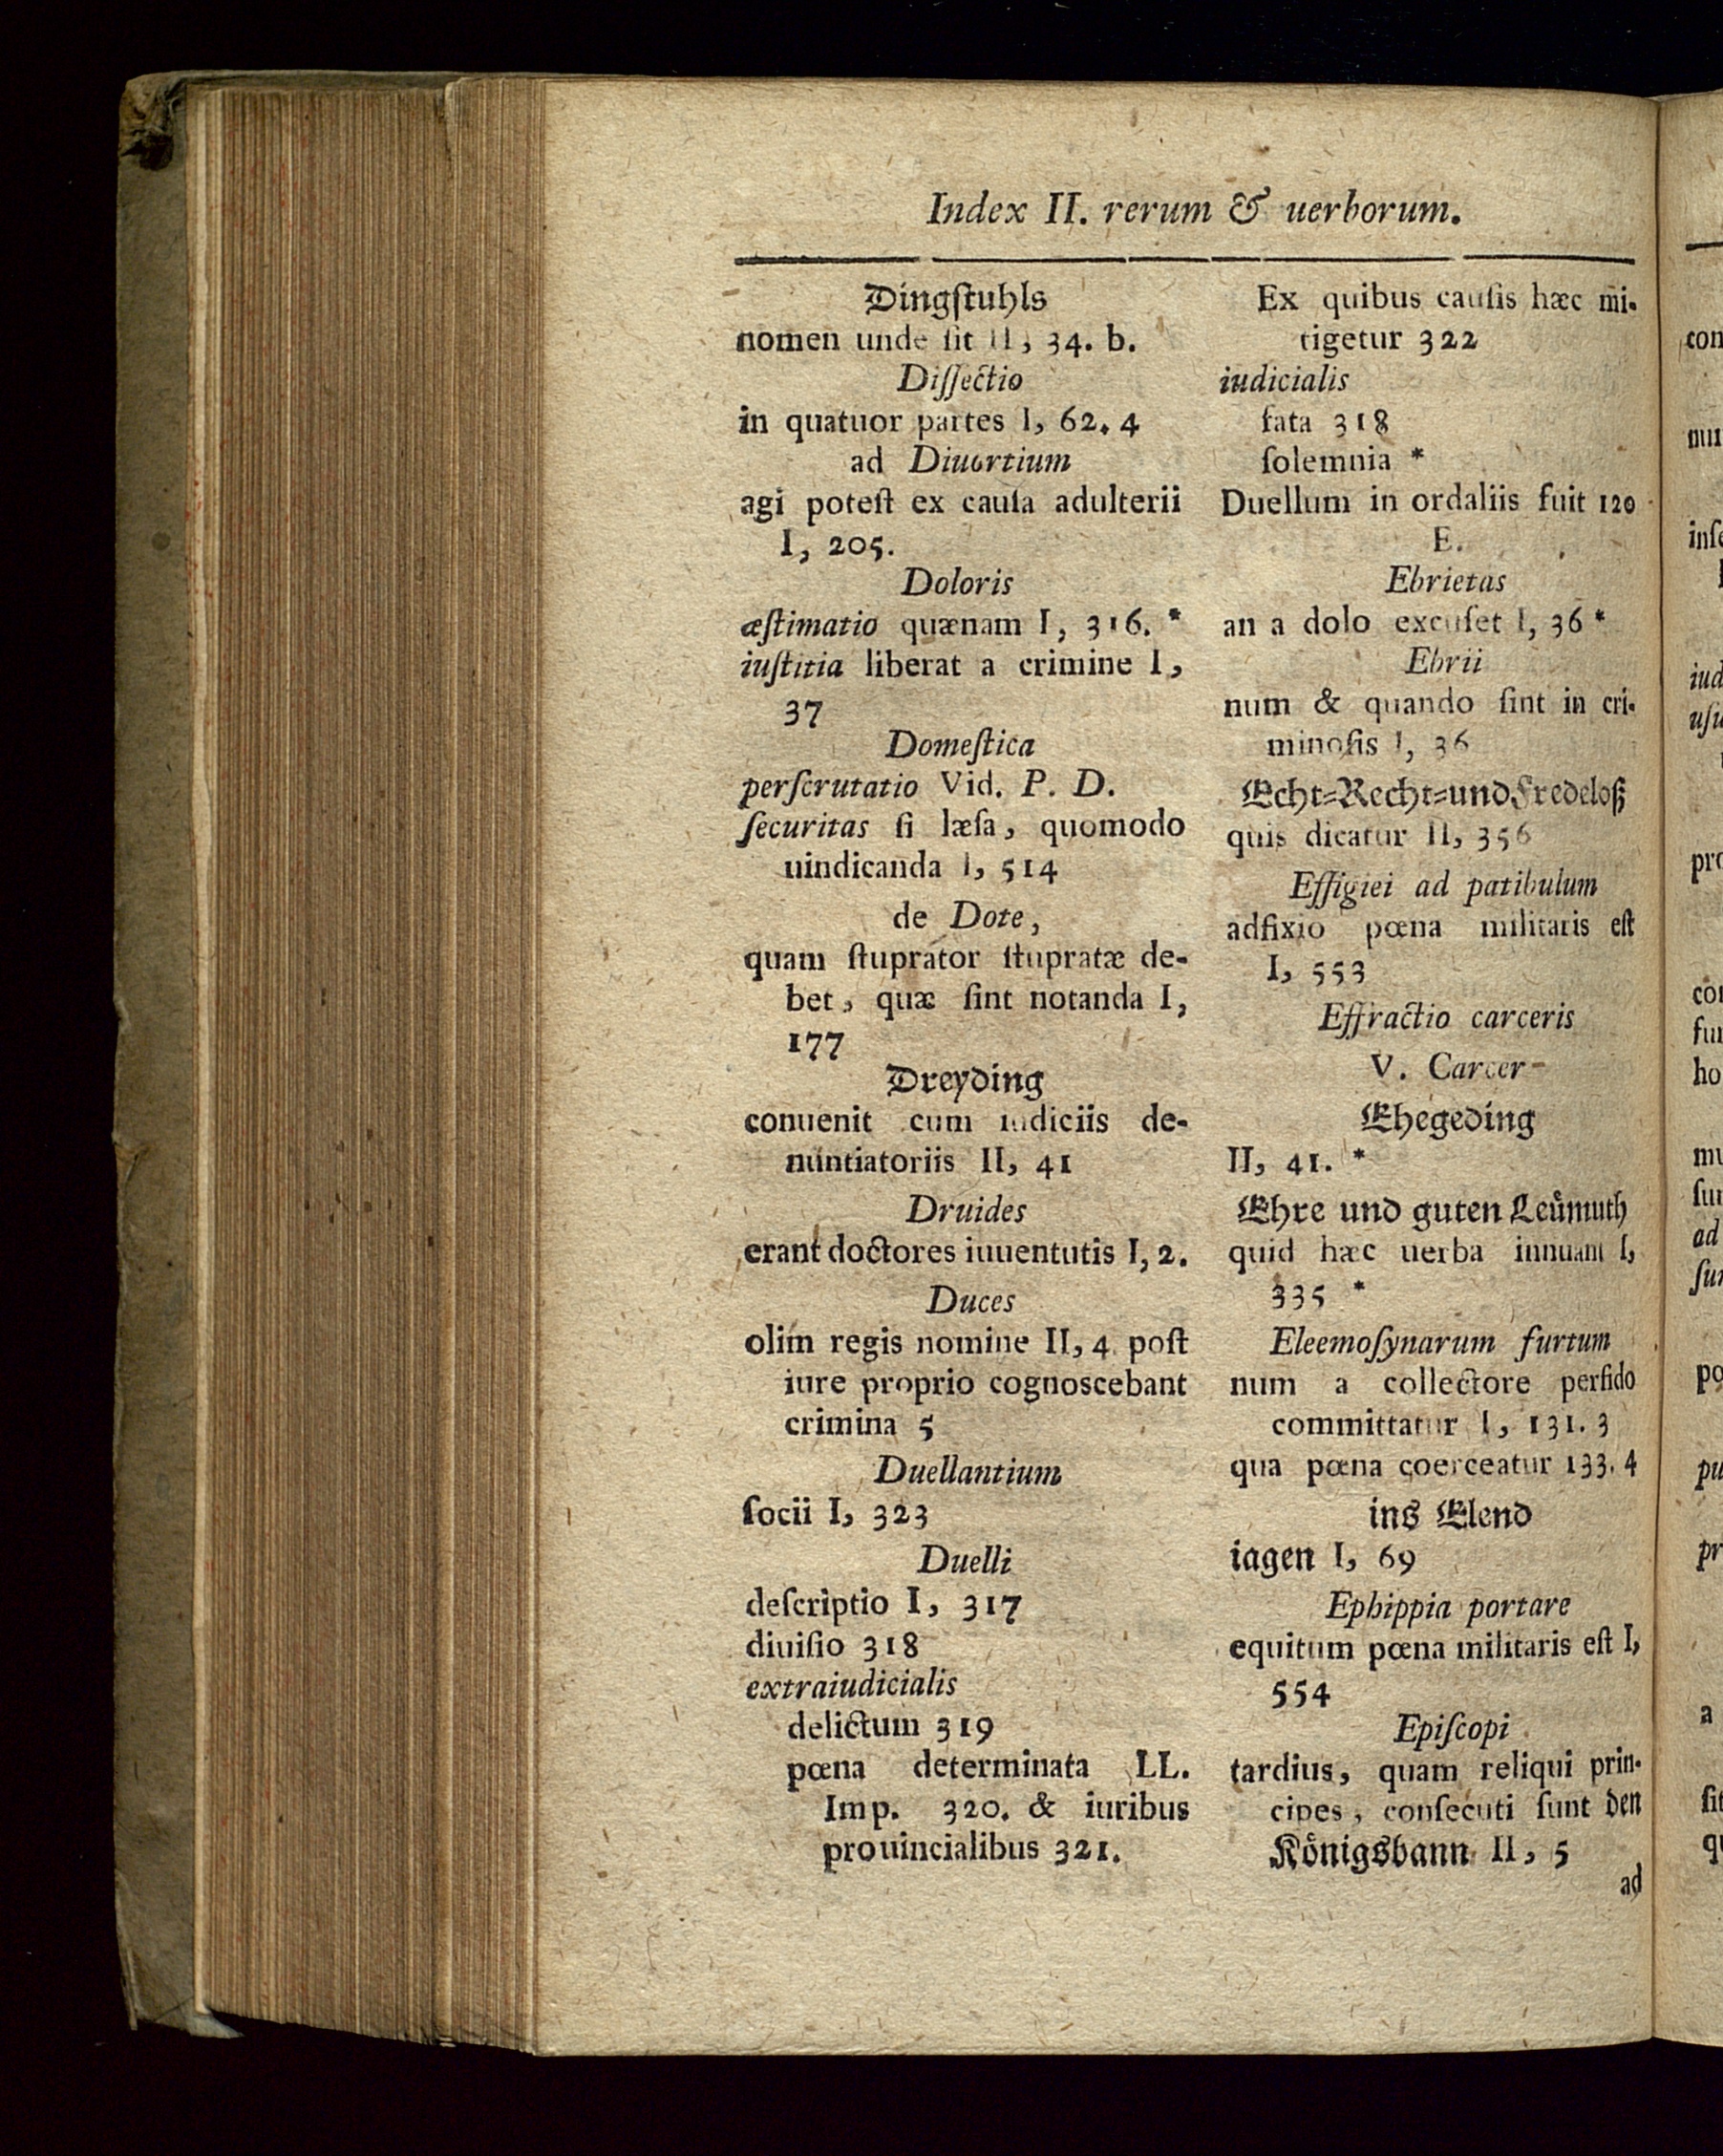 Index II. rerum & uerborum.
Dingſtuhls
nomen unde ſit II, 34. b.
Diſſectio
in quatuor partes I, 62. 4
ad Diuortium
agi poteſt ex cauſa adulterii
I, 205.
Doloris
æſtimatio quænam I, 316. *
iuſtitia liberat a crimine I,
37
Domeſtica
perſcrutatio Vid. P. D.
ſecuritas ſi læſa, quomodo
uindicanda I, 514
de Dote,
quam ſtuprator ſtupratæ de-
bet, quæ ſint notanda I,
177
Dreyding
conuenit cum iudiciis de-
nuntiatoriis II, 41
Druides
erant doctores iuuentutis I, 2.
Duces
olim regis nomine II, 4 poſt
iure proprio cognoscebant
crimina 5
Duellantium
ſocii I, 323
Duelli
deſcriptio I, 317
diuiſio 318
extraiudicialis
delictum 319
pœna determinata LL.
Imp. 320. & iuribus
prouincialibus 321.
Ex quibus cauſis hæc mi-
tigetur 322
iudicialis
fata 318
ſolemnia *
Duellum in ordaliis fuit 120
E.
Ebrietas
an a dolo excuſet I, 36 *
Ebrii
num & quando ſint in cri-
minoſis I, 36
Echt-Recht-und Fredeloß
quis dicatur II, 356
Effigiei ad patibulum
adfixio pœna militaris eſt
I, 553
Effractio carceris
V. Carcer
Ehegeding
II, 41. *
Ehre und guten Leůmuth
quid hæc uerba innuant I,
335 *
Eleemoſynarum furtum
num a collectore perfido
committatur I, 131. 3
qua pœna coerceatur 133. 4
ins Elend
iagen I, 69
Ephippia portare
equitum pœna militaris eſt I,
554
Epiſcopi
tardius, quam reliqui prin-
cipes, conſecuti ſunt den
Kônigsbann II, 5
ad